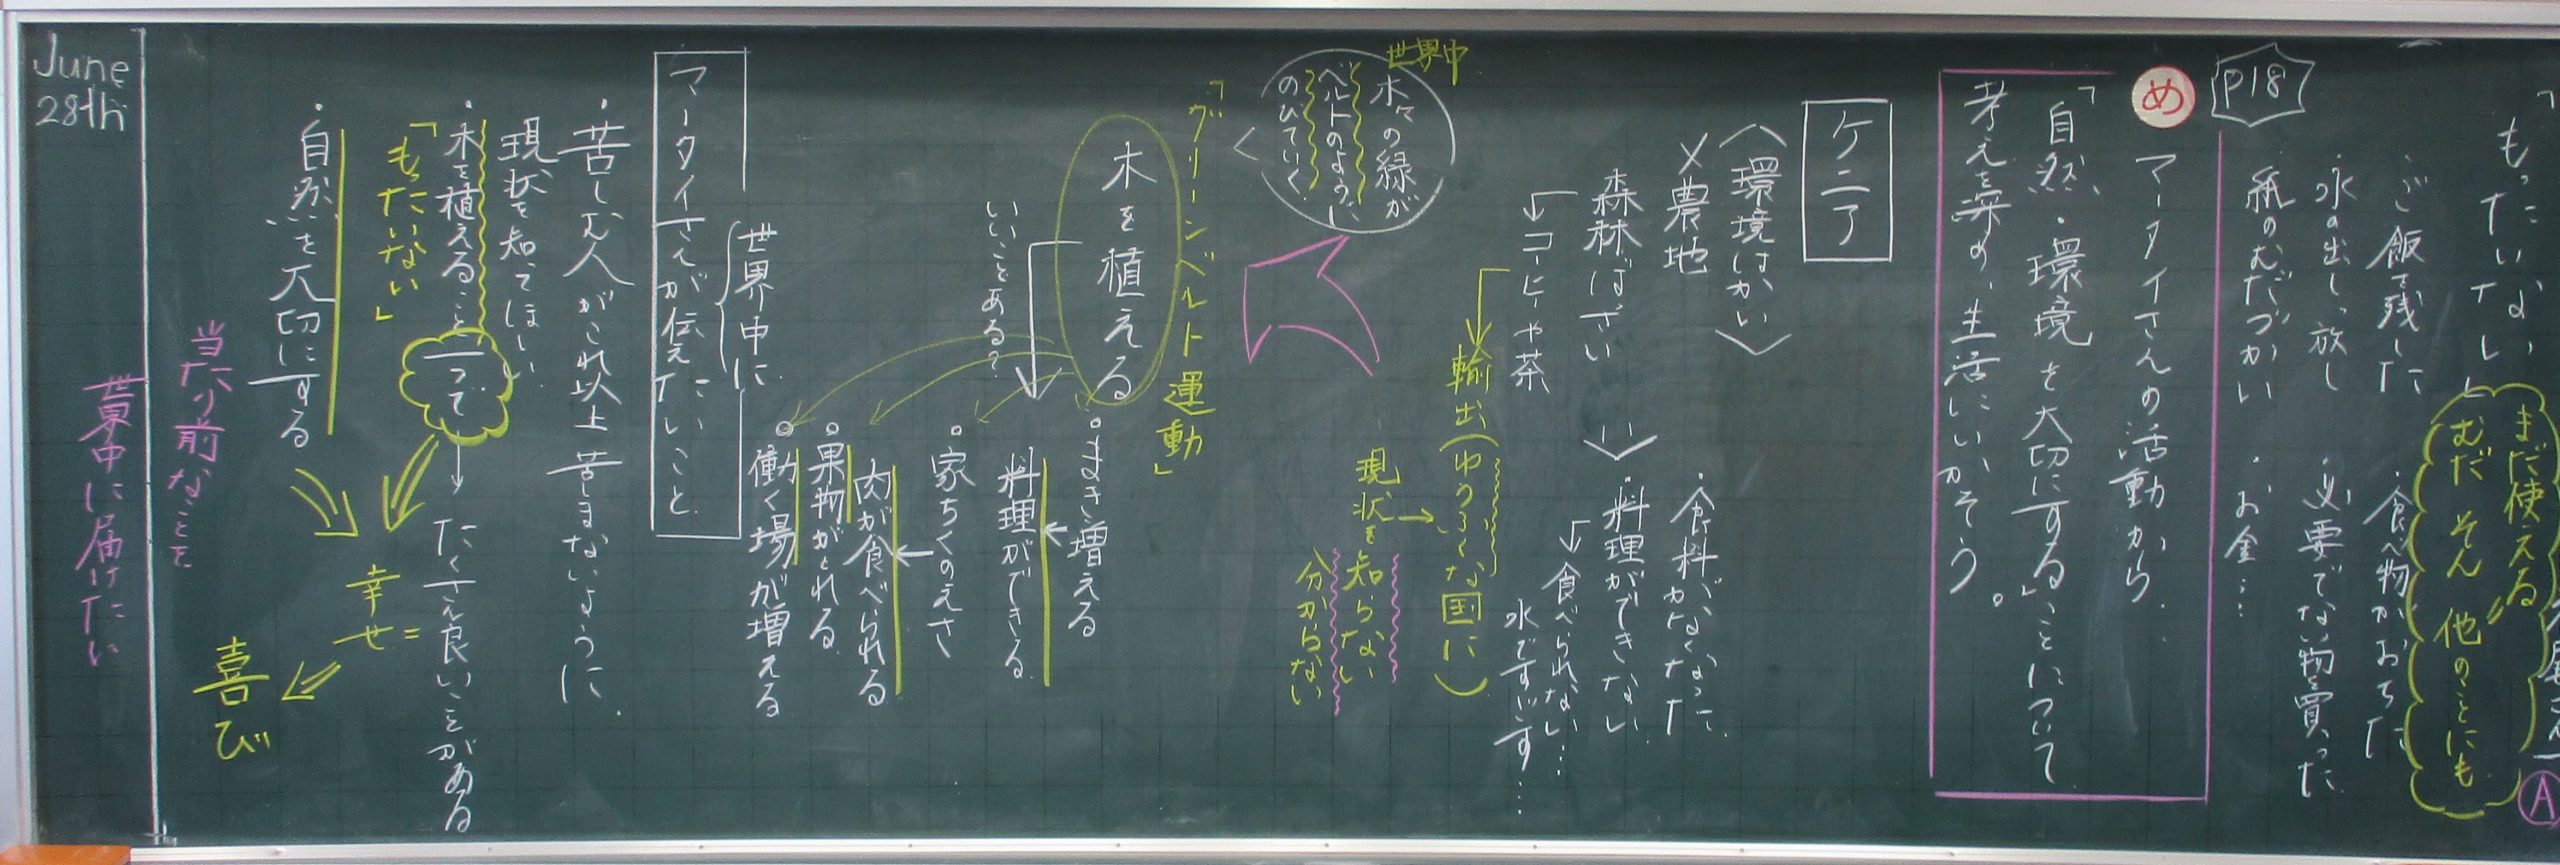 「もったいない」
まだ使える
むだ そん 他のことにも
A
・ご飯を残した
・食べ物がおちた
・水の出しっ放し
・必要でない物を買った
・紙のむだづかい
・お金…
P18
め
マータイさんの活動から、
「自然・環境を大切にする」ことについて
考えを深め、生活にいかそう。
ケニア
〈環境はかい〉
×農地
・食料がなくなって
森林ばっさい
・料理ができない
食べられない…
水ですごす…
コーヒーや茶
輸出(ゆうふくな国に)
現状を
知らない
分からない
世界中
木々の緑が
ベルトのように
のびていく
「グリーンベルト運動」
木を植える
いいことある?
まき増える
料理ができる
家ちくのえさ
肉が食べられる
果物がとれる
働く場が増える
世界中に
マータイさんが伝えたいこと
・苦しむ人がこれ以上苦しまないように、
現状を知ってほしい
・木を植えることって
たくさん良いことがある
「もったいない」
・自然を大切にする
幸せ=
喜び
当たり前なことを
世界中に届けたい
June
28th